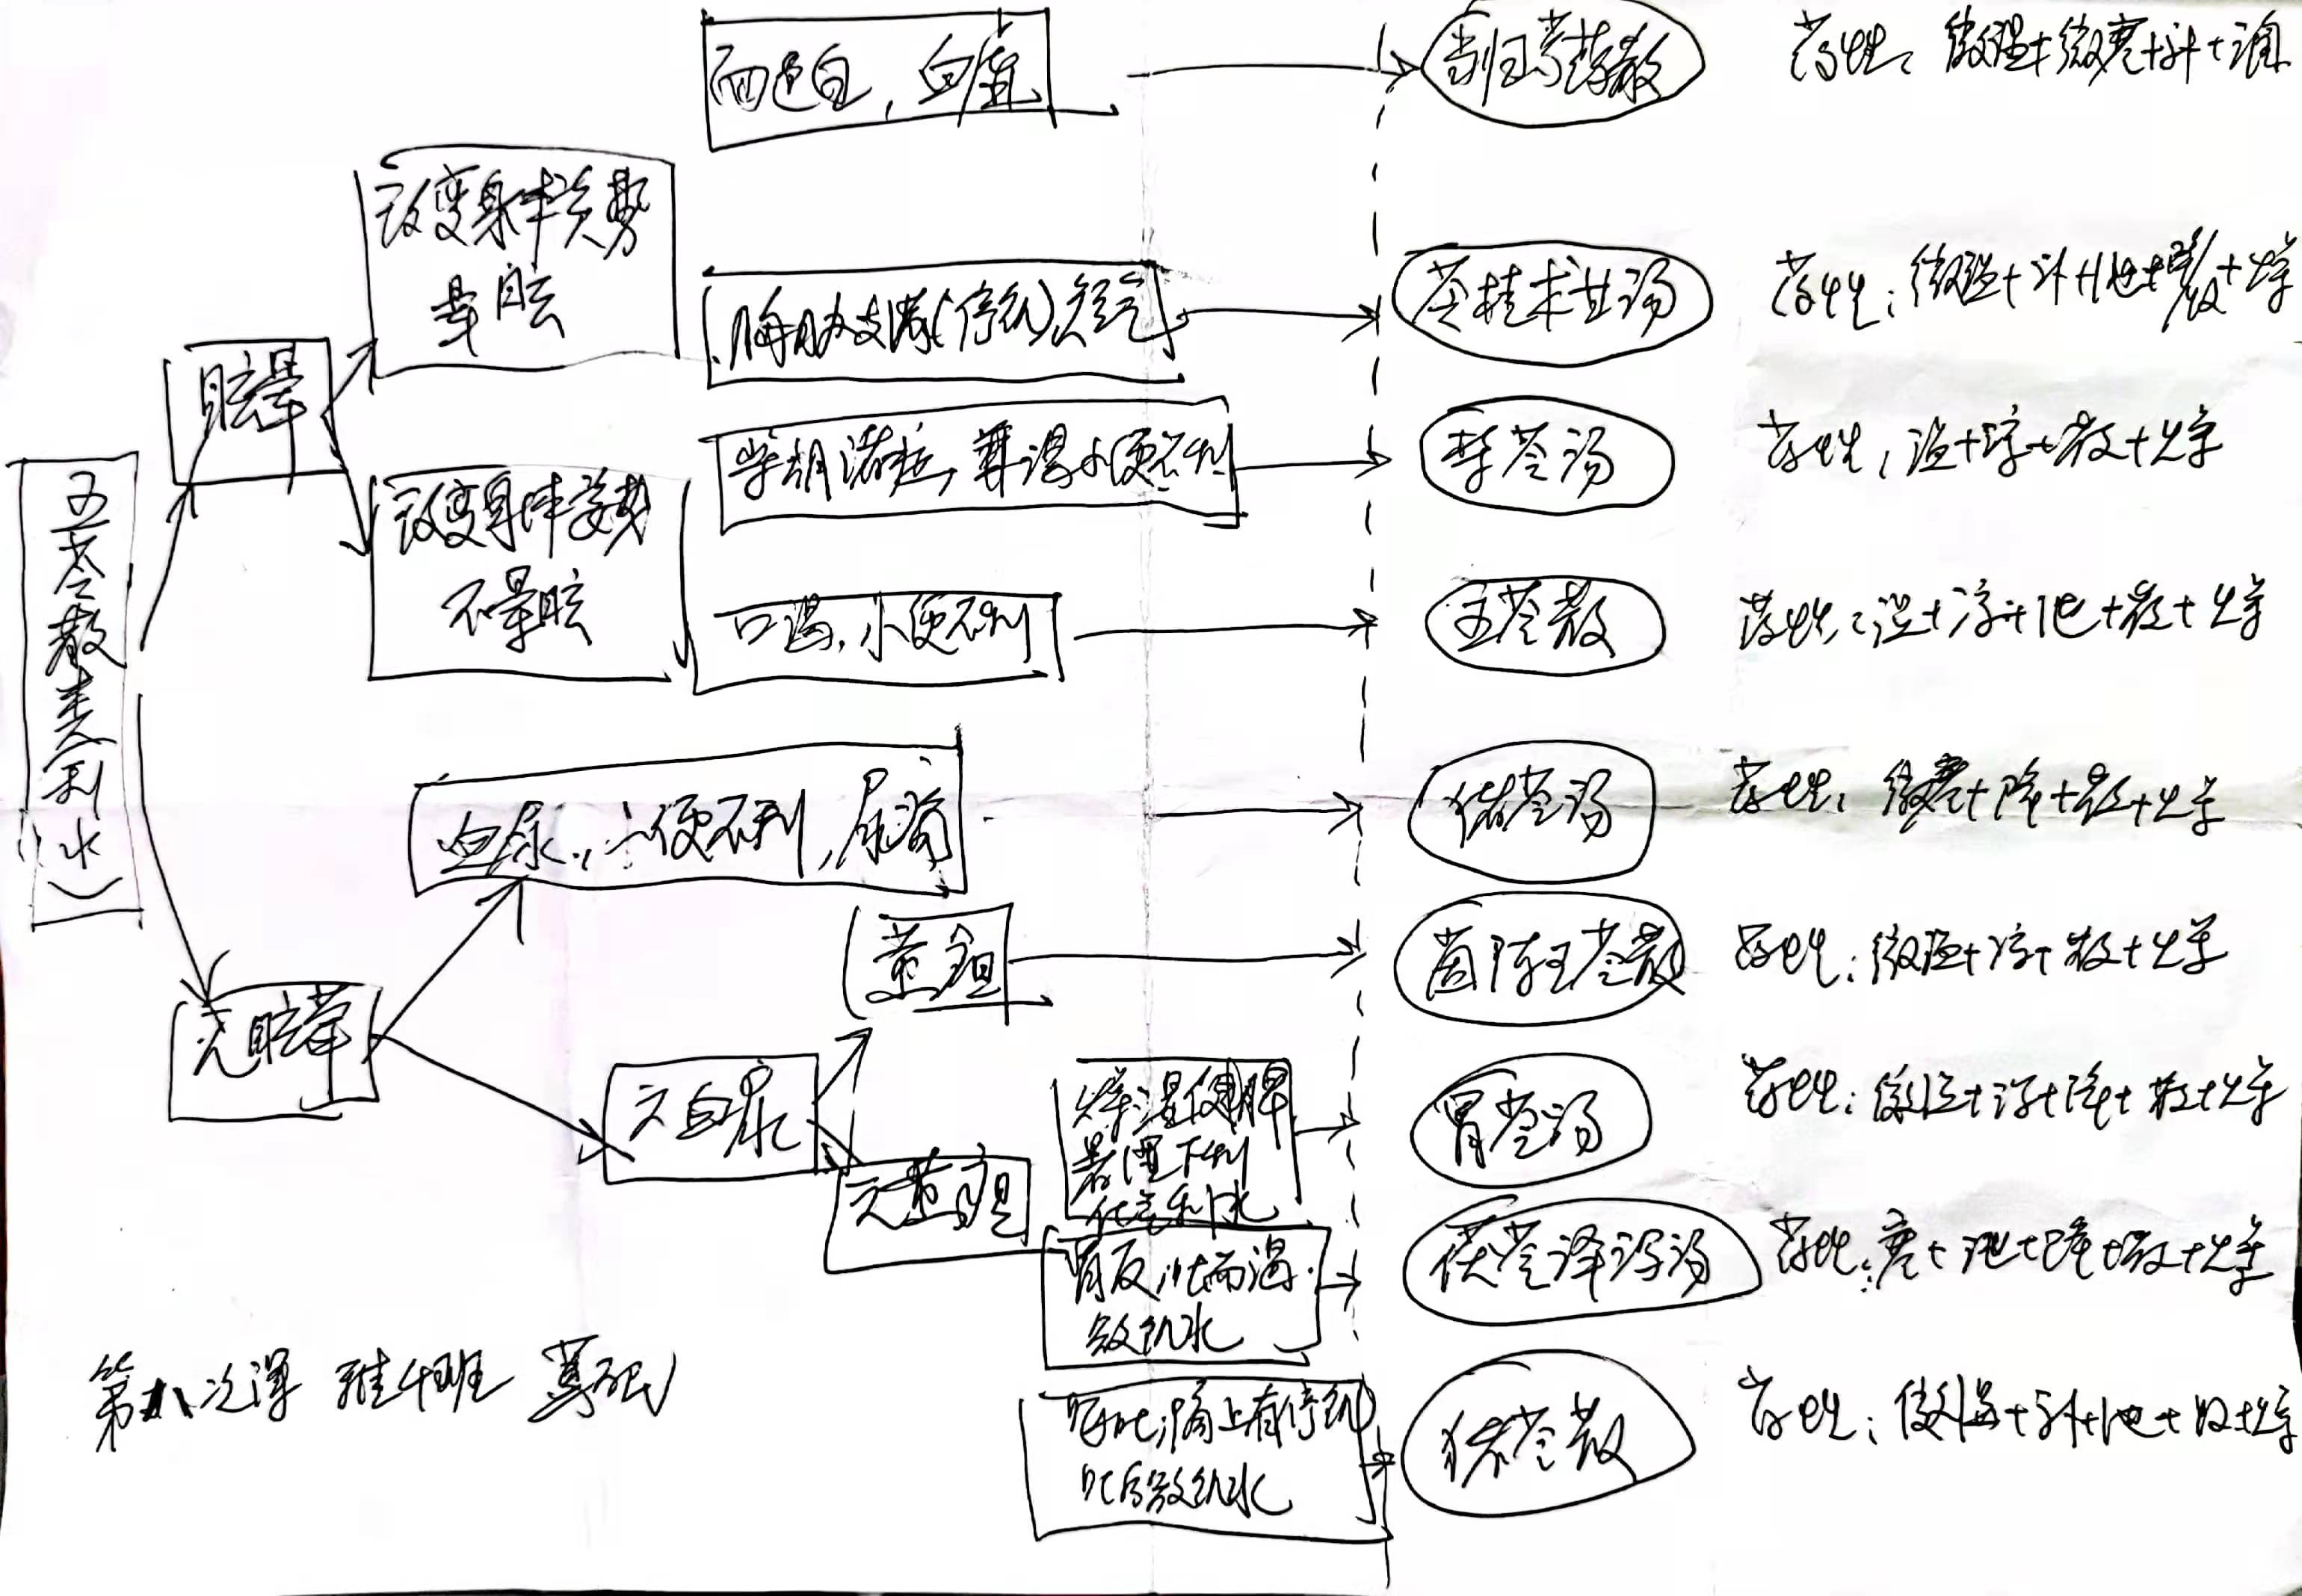 五苓散类(利水)
眩晕
改变身体姿势
晕眩
改变身体姿势
不晕眩
面色白，血虚
当归芍药散
药性：微温+微寒+升+润
胸胁支满(停饮)，短气
苓桂术甘汤
药性：微温+升+泄+散+燥
柴胡诸症，兼渴小便不利
柴苓汤
药性：温+浮+散+燥
口渴，小便不利
五苓散
药性：温+浮+泄+散+燥
无眩晕
血尿，小便不利，尿痛
猪苓汤
药性：微寒+降+散+燥
无血尿
黄疸
茵陈五苓散
药性：微温+浮+散+燥
无黄疸
燥湿健脾
暑湿下利
化气利水
胃苓汤
药性：微温+浮+降+散+燥
胃反，吐而渴
欲饮水
茯苓泽泻汤
药性：寒+泄+降+散+燥
呕吐，膈上有停饮
吐后欲饮水
猪苓散
药性：微温+升+泄+收+燥
第八次课